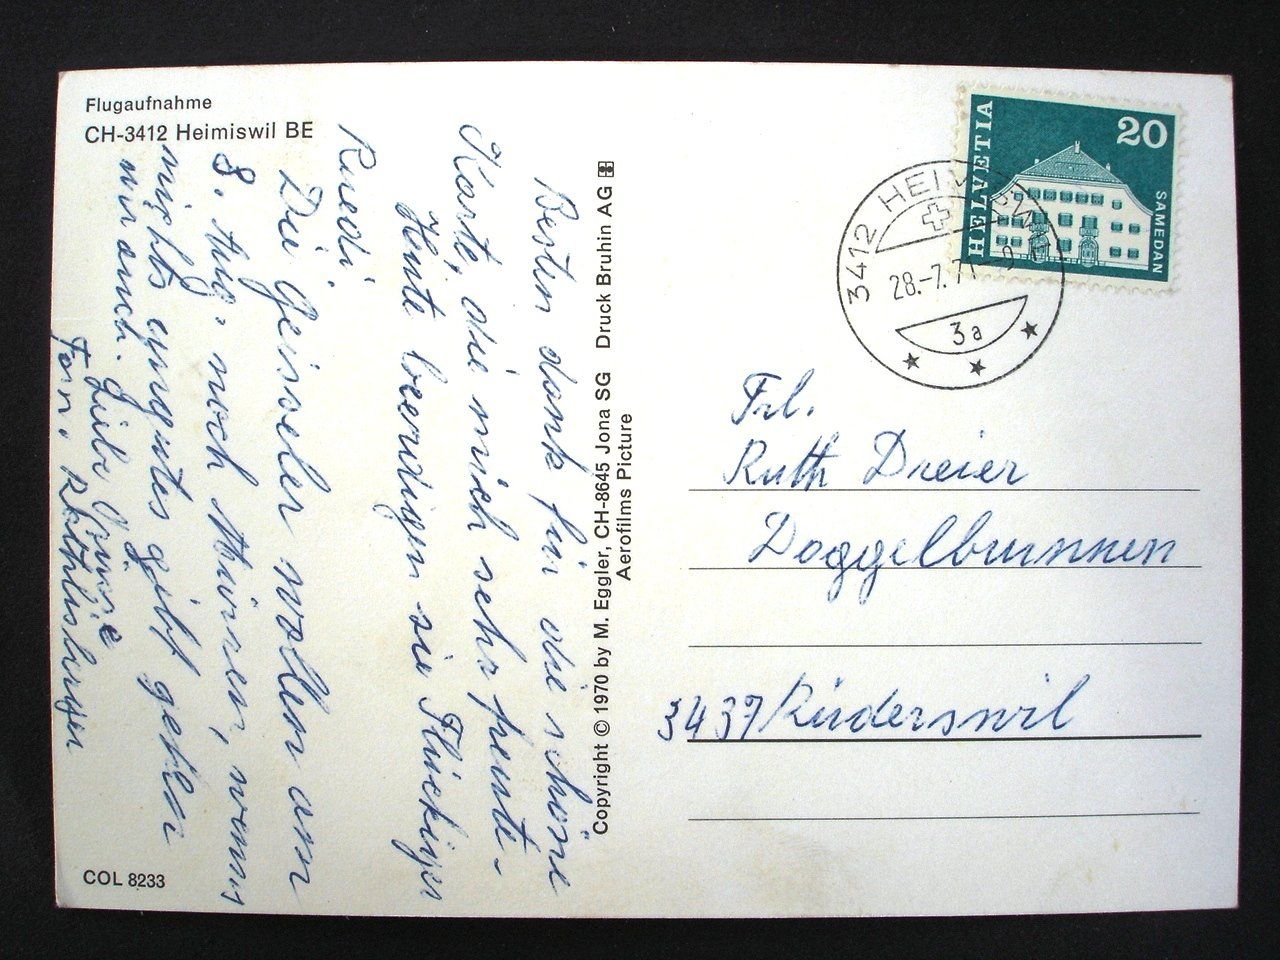 Flugaufnahme
CH-3412 Heimiswil BE
Besten dank für die schöne
Karte, die mich sehr freute.
Heute beerdigen sie Flückiger
Ruedi.
Die Geisseler wollen am
8. Aug. noch Thürnen, wenns
nichts ungutes gibt gehen
wir auch. Liebe Grüsse
Fam. Röthlisberger
COL 8233
Copyright © 1970 by M. Eggler, CH-8645 Jona SG Druck Bruhin AG
Aerofilms Picture
HELVETIA
20
SAMEDAN
3412 HEIMISWIL
28.-7.71
3a
Frl.
Ruth Dreier
Doggelbrunnen
3437 Rüderswil